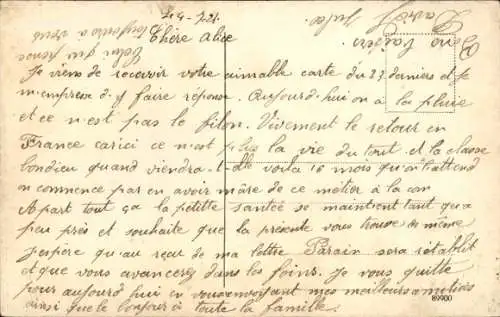 24-7-21.
Chère Alice
Je viens de recevoir votre aimable carte du 27 derniers et je
m'empresse d'y faire réponse. Aujourd'hui on a la pluie
et ce n'est pas le filon. Vivement le retour en
France car ici ce n'est plus la vie du tout et la classe
bondieu quand viendra-t-elle voila 16 mois qu'on l'attend
on commence par en avoir mare de ce métier à la con
Apart tout ça la petitte santée se maintient tant qu'a
peu près et souhaite que la présente vous trouve de même
J'espère qu'au reçu de ma lettre Parain sera rétablit
et que vous avancerez dans les foins. Je vous quitte
pour aujourd'hui en vous envoyant mes meilleurs amitiés
ainsi que le bonjour à toute la famille.
Celui qui pense
toujours à vous
Jules
89900